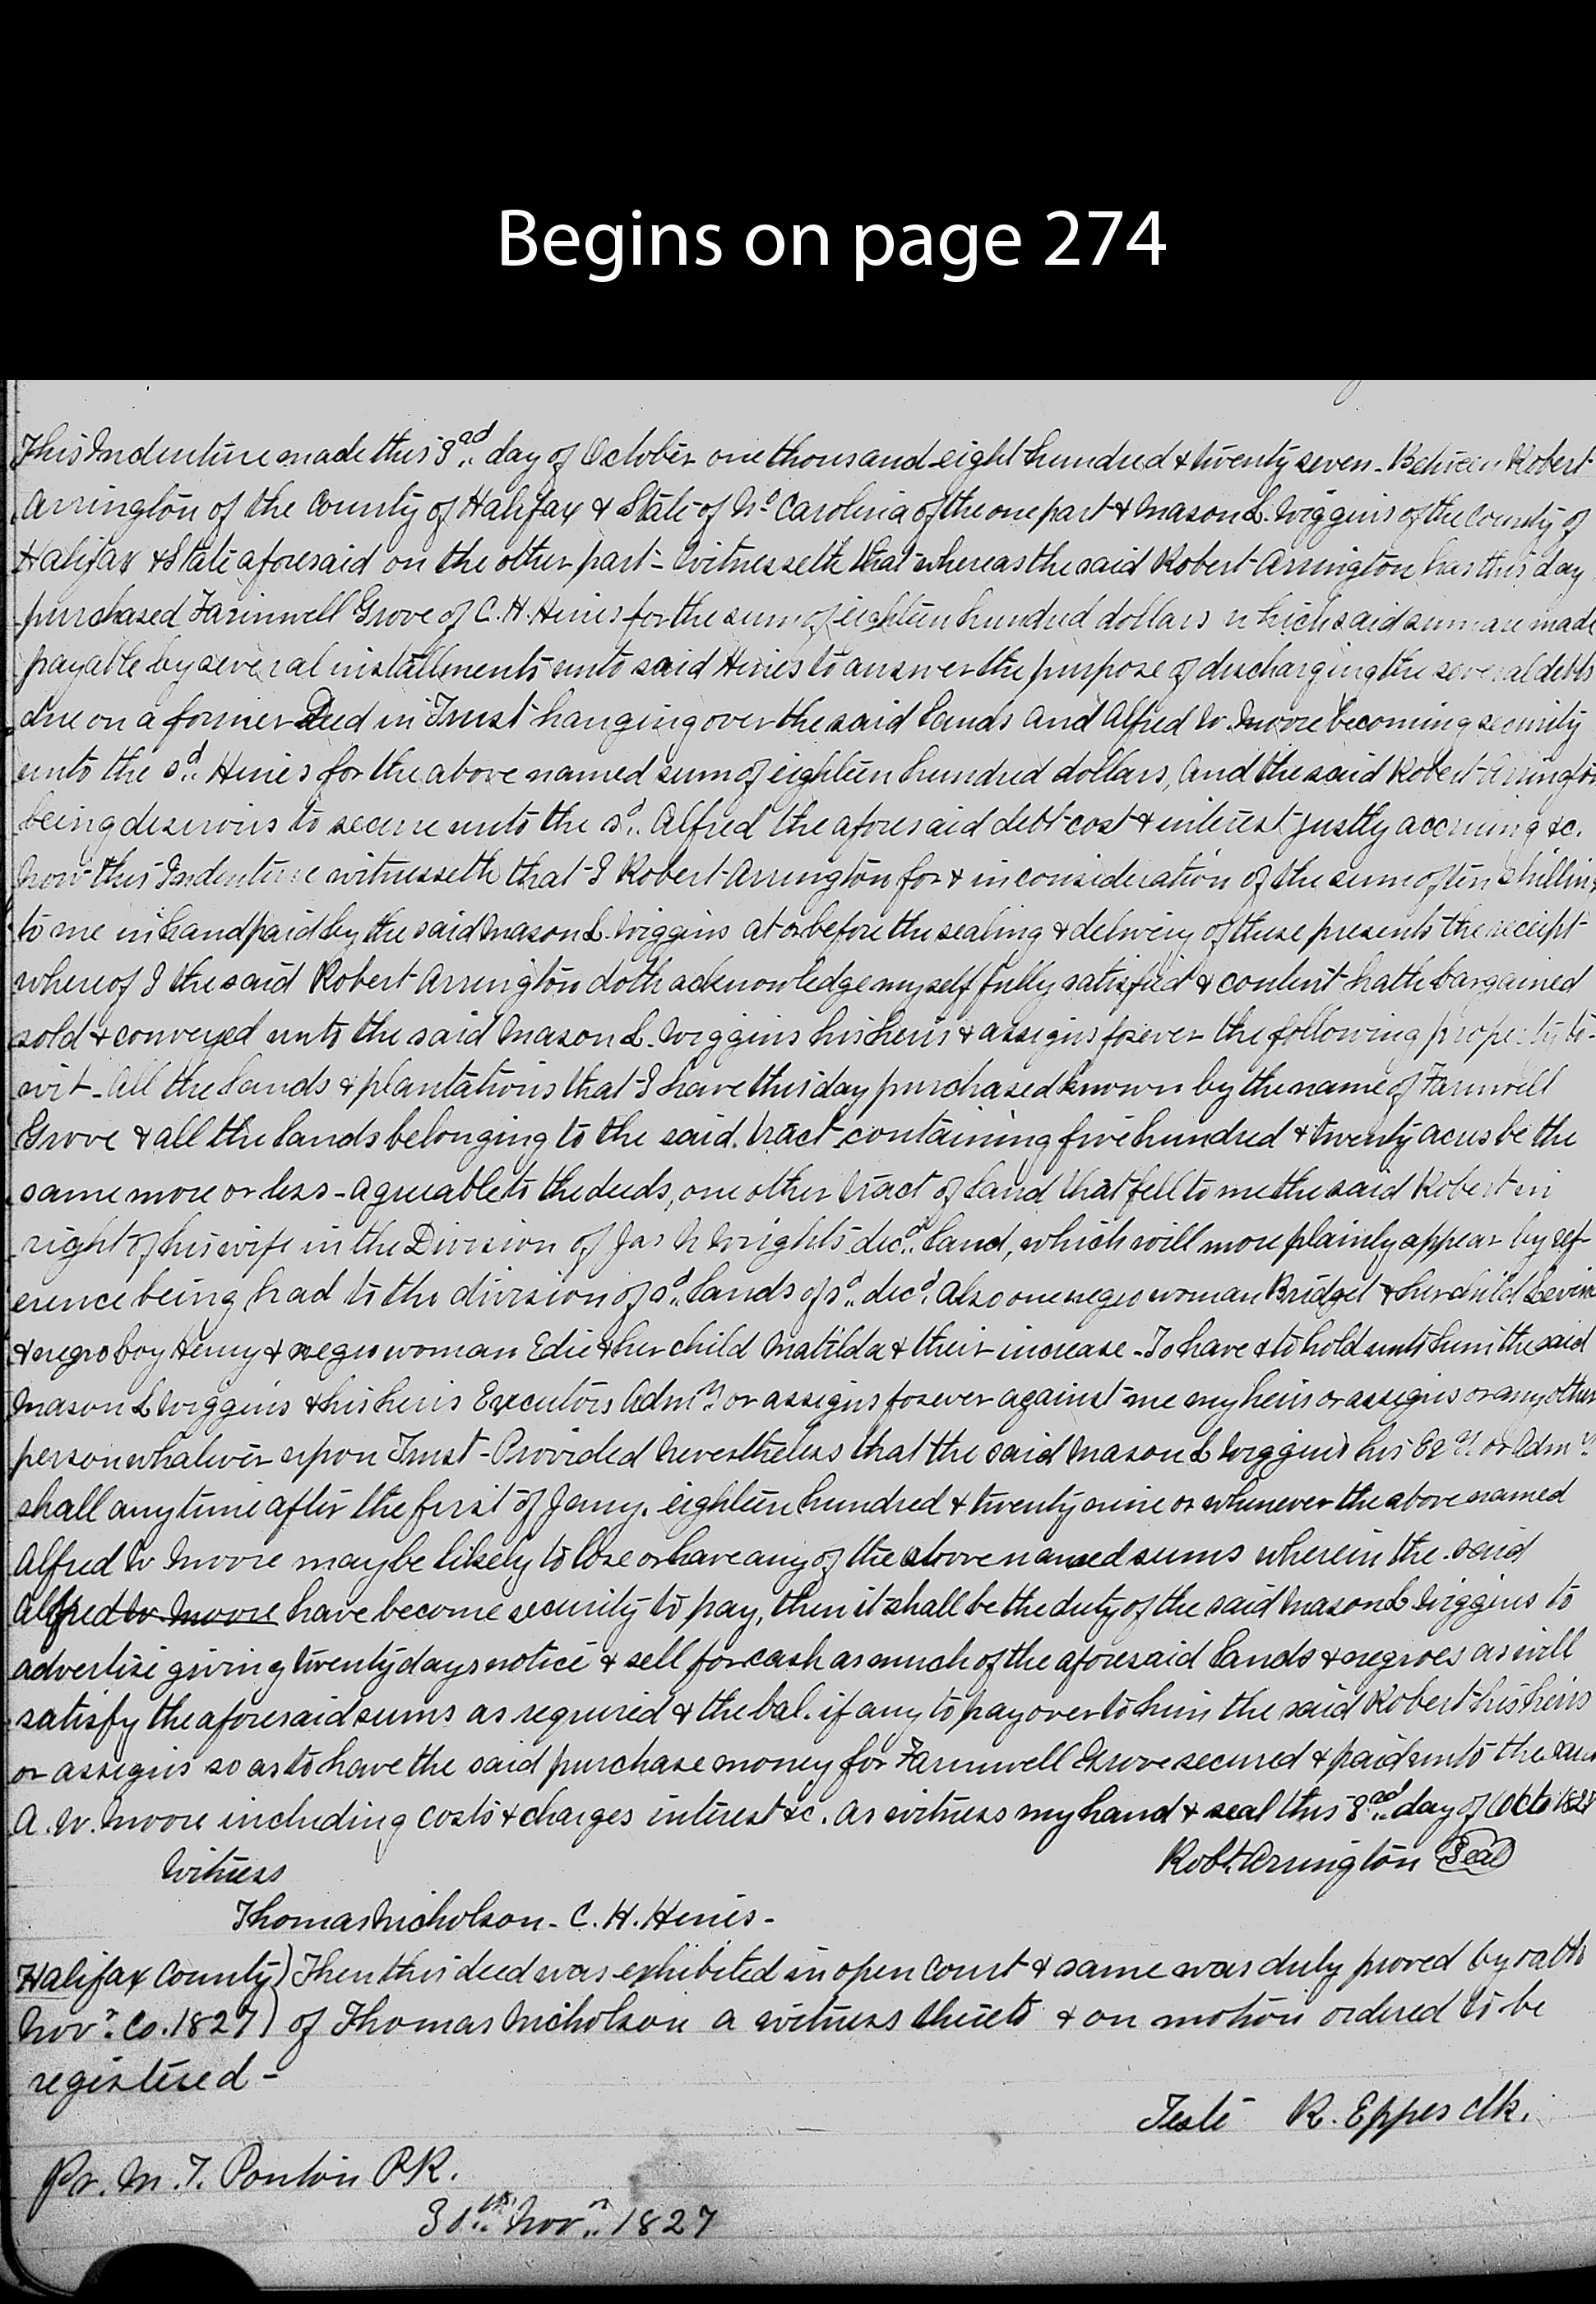 Begins on page 274
This Indenture made this 3rd day of October one thousand eight hundred & twenty seven - Between Robert
Arrington of the County of Halifax & State of No Carolina of the one part & Mason L. Wiggins of the County of
Halifax & State aforesaid on the other part - Witnesseth that whereas the said Robert Arrington has this day
purchased Farmwell Grove of C. H. Hines for the sum of eighteen hundred dollars which said sum are made
payable by several installments unto said Hines to answer the purpose of discharging the several debts
due on a former Deed in Trust hanging over the said lands and Alfred W. Moore becoming security
unto the sd. Hines for the above named sum of eighteen hundred dollars, And the said Robert Arrington
being desirous to secure unto the sd. Alfred the aforesaid debt cost & interest justly accruing &c.
Now this Indenture witnesseth that I Robert Arrington for & in consideration of the sum of ten shilling
to me in hand paid by the said Mason L. Wiggins at or before the sealing & delivery of these presents the receipt
whereof I the said Robert Arrington doth acknowledge myself fully satisfied & content hath bargained
sold & conveyed unto the said Mason L. Wiggins his heirs & assigns forever the following property to-
wit - All the lands & plantations that I have this day purchased known by the name of Farmwell
Grove & all the lands belonging to the said tract containing five hundred & twenty acres be the
same more or less - agreeable to the deeds, one other tract of land that fell to me the said Robert in
right of his wife in the Division of Jas N Wrights decd. land, which will more plainly appear by ref-
erence being had to the division of sd. lands of sd. decd. Also one negro woman Bridget & her child Levina
& negro boy Henry & negro woman Edie & her child Matilda & their increase - To have & to hold unto him the said
Mason L Wiggins & his heirs Executors Admrs or assigns forever against me my heirs or assigns or any other
person whatever upon Trust - Provided Nevertheless that the said Mason L Wiggins his Exrs or Admrs
shall any time after the first of Jany. eighteen hundred & twenty nine or whenever the above named
Alfred W Moore may be likely to lose or have any of the above named sums wherein the said
Alfred W. Moore have become security to pay, then it shall be the duty of the said Mason L Wiggins to
advertise giving twenty days notice & sell for cash as much of the aforesaid lands & negroes as will
satisfy the aforesaid sums as required & the bal. if any to pay over to him the said Robert his heirs
or assigns so as to have the said purchase money for Farmwell Grove secured & paid unto the said
A. W. Moore including costs & charges interest &c. As witness my hand & seal this 3rd day of Octo 1827
Witness Robt. Arrington Seal
Thomas Nicholson - C. H. Hines -
Halifax County) Then this deed was exhibited in open Court & same was duly proved by oath
Novr. Co. 1827) of Thomas Nicholson a witness thereto & on motion ordered to be
registered -
Teste R. Eppes Clk.
Pr. M. T. Ponton P.R.
30th Novr. 1827